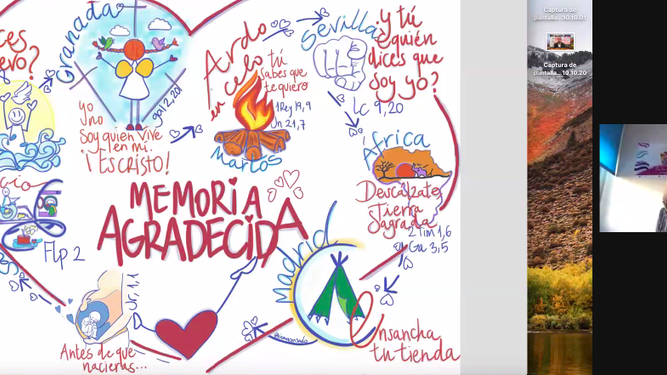 Granada
yo
y no
Soy quien vive
en mi.
¡Es CRISTO!
Ardo
en celo
tú
Sabes que
te quiero
1 Rey 19, 9
Jn 21,7
Martos
Sevilla
¿y tú
quién
dices que
Soy yo?
Lc 9,20
África
Descálzate,
Tierra
Sagrada
2 Tim 1,6
Ga 3,5
MEMORIA
AGRADECIDA
Flp 2
Jr 1,1
Antes de que
nacieras...
Madrid
Ensancha
tu tienda
Captura de
pantalla...10.10.01
Captura de
pantalla...10.10.20